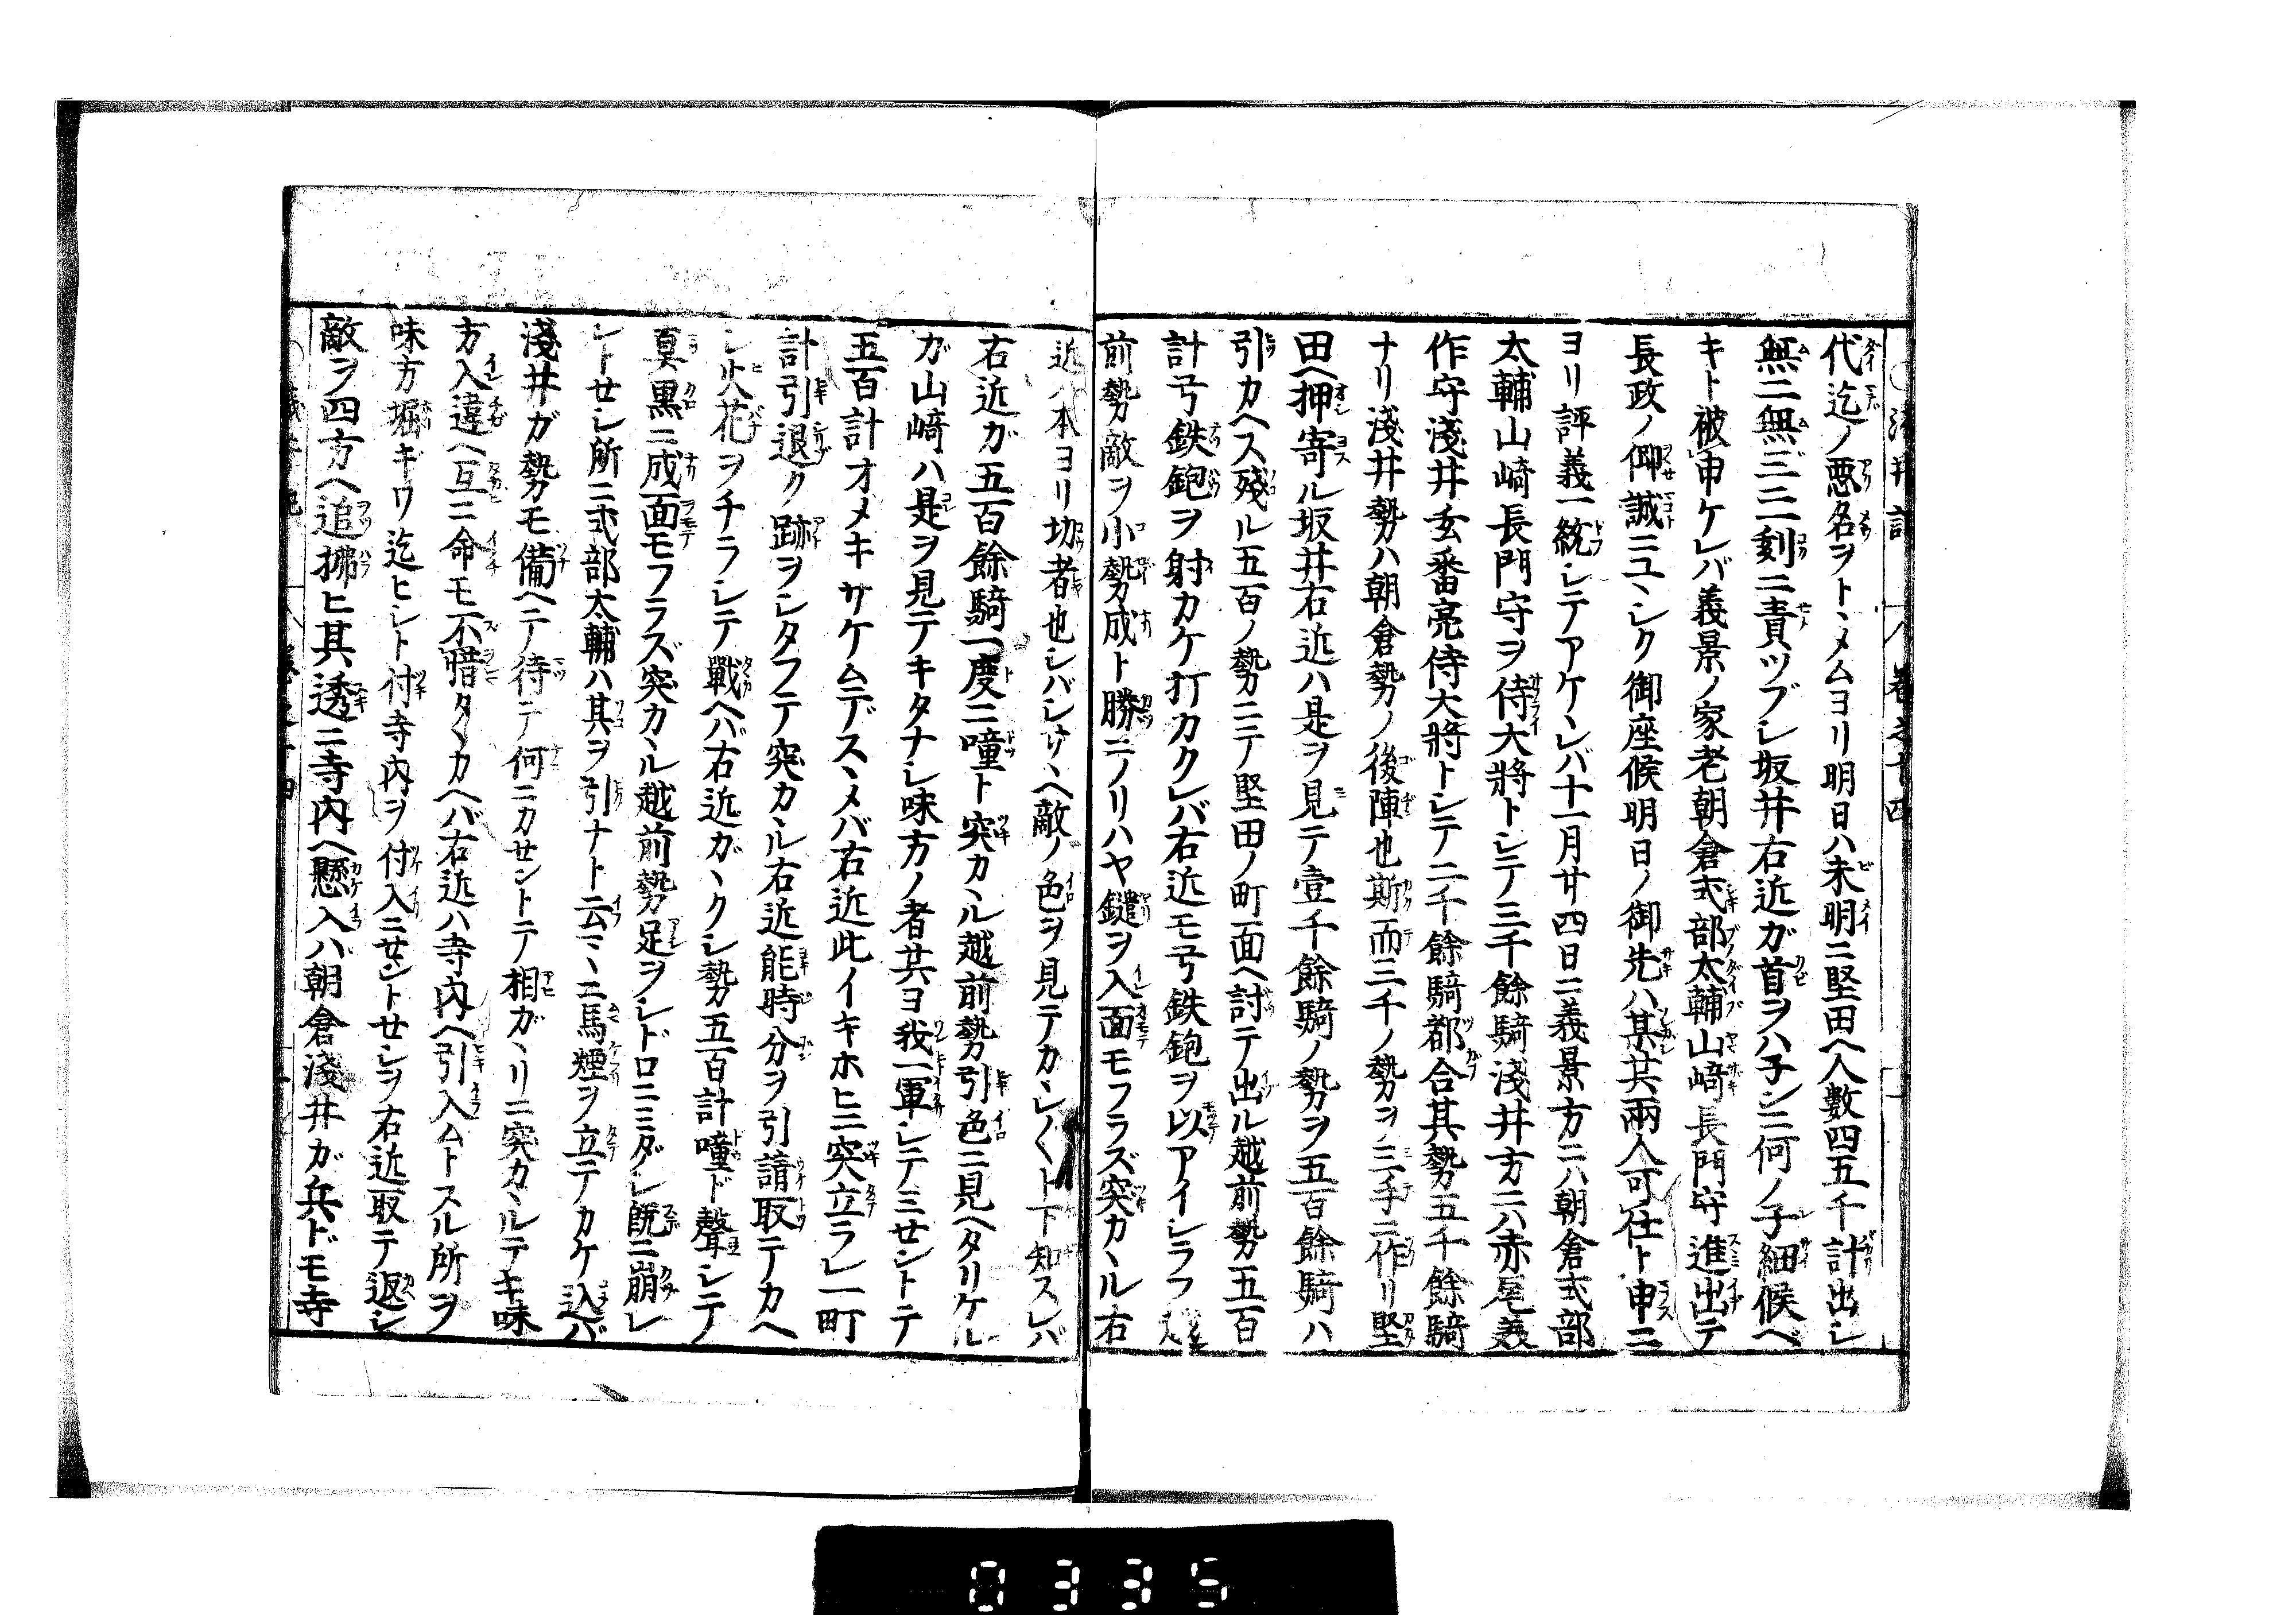 代迄ノ悪名ヲトヽメムヨリ明日ハ未明ニ堅田ヘ人数四五千計出シ
無二無三ニ一刻ニ責ツブシ坂井右近ガ首ヲハ子ンニ何ノ子細候ヘ
キト被申ケレバ義景ノ家老朝倉式部太輔山崎長門守進出テ
長政ノ仰誠ニユヽシク御座候明日ノ御先ハ某共兩人可仕ト申ニ
ヨリ評義一統シテアケレバ十一月廿四日ニ義景方ニハ朝倉式部
太輔山崎長門守ヲ侍大將トシテ三千餘騎淺井方ニハ赤尾美
作守淺井玄番亮侍大將トシテ二千餘騎都合其勢五千餘騎
ナリ淺井勢ハ朝倉勢ノ後陣也斯而三千ノ勢ヲ三手ニ作リ堅
田ヘ押寄ル坂井右近ハ是ヲ見テ壹千餘騎ノ勢ヲ五百餘騎ハ
引カヘス殘ル五百ノ勢ニテ堅田ノ町一面ヘ討テ出ル越前勢五百
計弓鉄鉋ヲ射カケ打カクレバ右近モ弓鉄鉋ヲ以アイシラフ
前勢敵ヲ小勢成ト勝ニノリハヤ鑓ヲ入面モフラズ突カヽル右
近ハ本ヨリ功者也シバシサヽヘ敵ノ色ヲ見テカヽレ〳〵ト下知スレバ
右近ガ五百餘騎一度ニ噇ト突カヽル越前勢引色ニ見ヘタリケル
ガ山崎ハ是ヲ見テキタナシ味方ノ者共ヨ我一軍シテミセントテ
五百計オメキサケムデスヽメバ右近此イキホヒニ突立ラレ一町
計引退ク跡ヲシタフテ突カヽル右近能時分ヲ引請取テカヘ
シ火花ヲチラシテ戰ヘバ右近ガヽクシ勢五百計噇ド聲シテ
真黒ニ成一面モフラズ突カヽル越前勢足ヲシドロニミダシ既ニ崩レ
シトセシ所ニ式部太輔ハ其ヲ引ナト云マヽニ馬煙ヲ立テカケ込バ
淺井ガ勢モ備ヘテ待テ何ニカセントテ相ガヽリニ突カヽルテキ味
方入違ヘ互ニ命モ不惜タヽカヘバ右近ハ寺内ヘ引入ムトスル所ヲ
味方堀ギワ迄ヒシト付寺内ヲ付入ニセントセシヲ右近取テ返シ
敵ヲ四方ヘ追拂ヒ其透ニ寺内ヘ懸入バ朝倉淺井ガ兵ドモ寺
0335